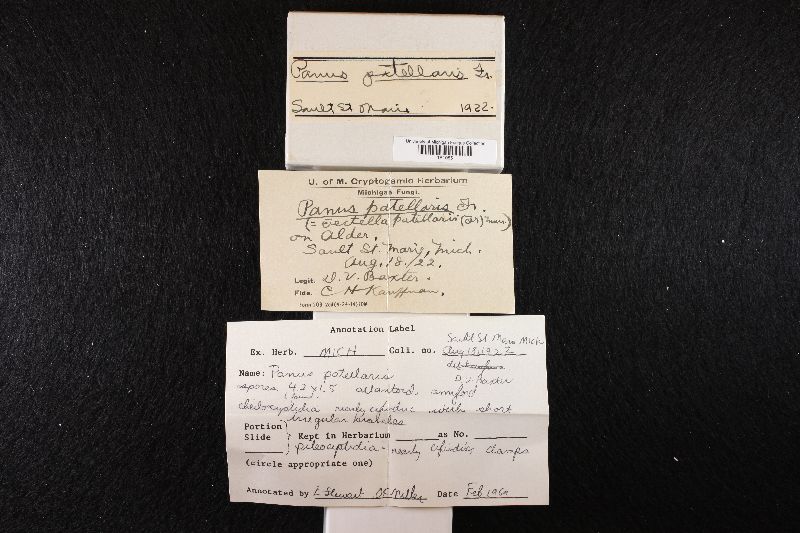 Panus patellaris Fr.
Sault St Marie 1922.
University of Michigan Fungus Collection
U. of M. Cryptogamic Herbarium
Michigan Fungi.
Panus patellaris Fr.
(= Tectella patellaris (Fr) Murr.)
on Alder.
Sault St. Mary, Mich.
Aug. 18./22.
Legit. D. V. Baxter.
Fide. C H Kauffman.
Annotation Label
Sault St Marie MICH
Ex. Herb. MICH Coll. no. Aug 18, 1922
Name: Panus patellaris
D. V. Baxter
spores 4.2 x 1.5 allantoid, amyloid
cheilocystidia nearly with short
irregular
Portion
Slide } Kept in Herbarium as No.
pileocystidia - nearly clamps
(circle appropriate one)
Annotated by L Stewart OK Miller Date Feb